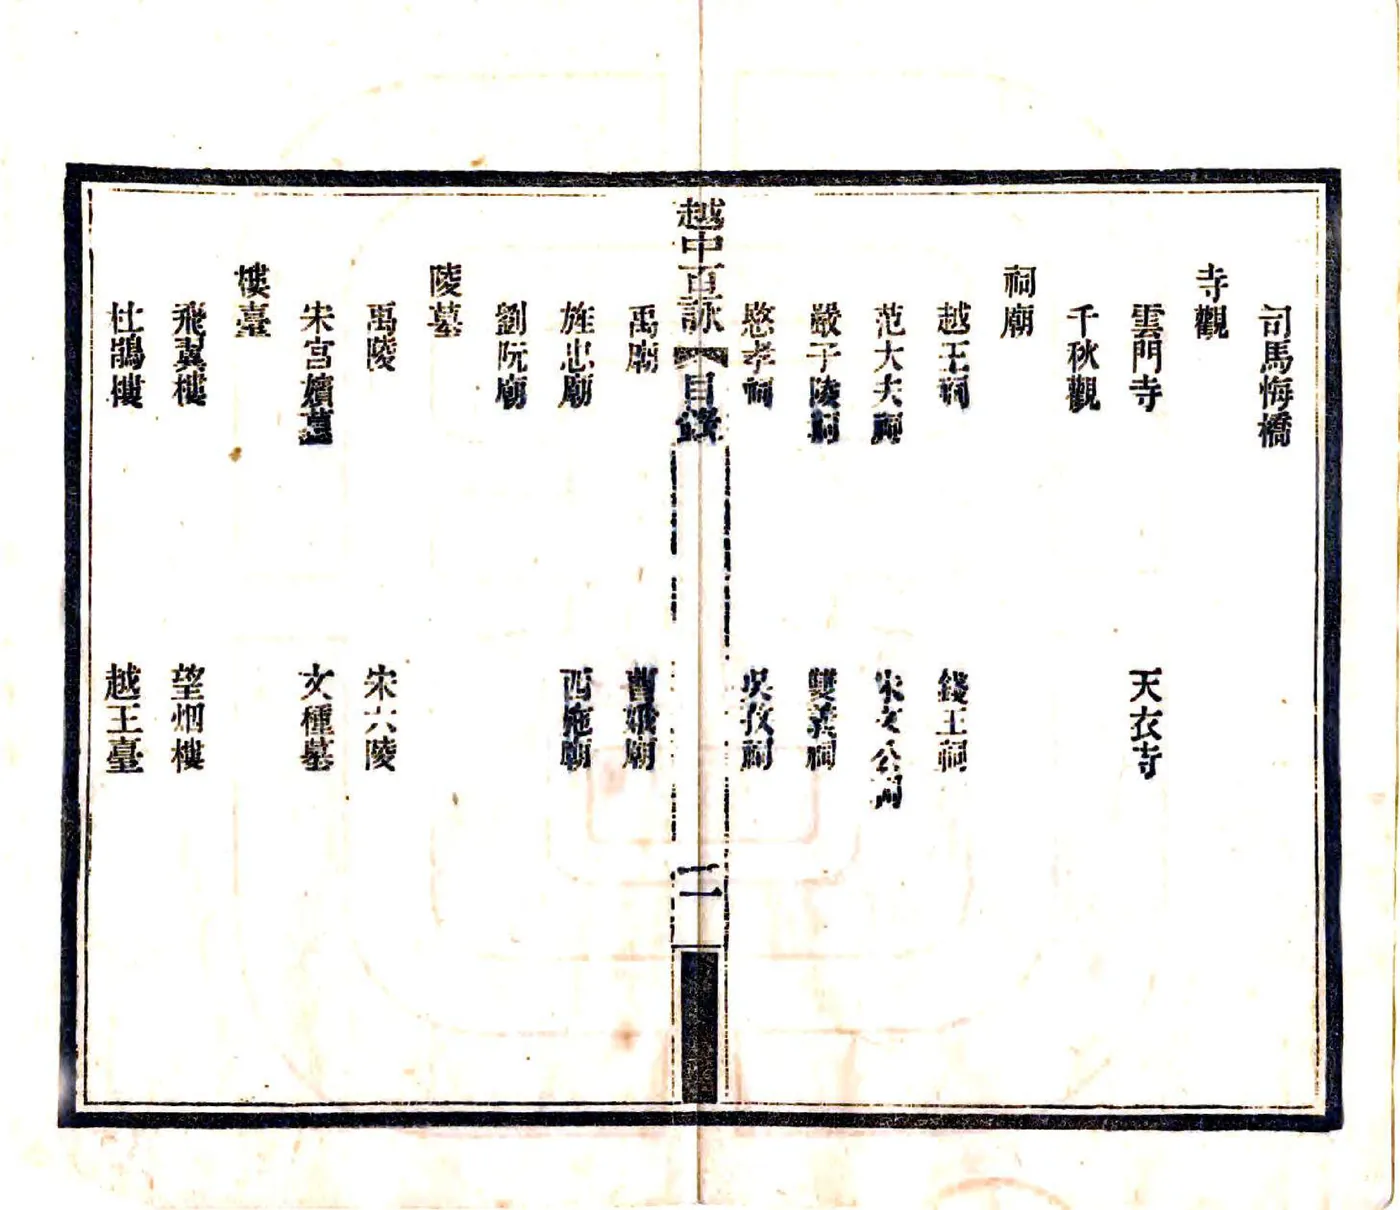 司馬悔橋
寺觀
雲門寺 天衣寺
千秋觀
祠廟
越王祠 錢王祠
范大夫祠 朱文公祠
嚴子陵祠 雙義祠
愍孝祠 吳孜祠
越中百詠 目錄 二
禹廟 曹娥廟
旌忠廟 西施廟
劉阮廟
陵墓
禹陵 宋六陵
宋宮嬪墓 文種墓
樓臺
飛翼樓 望烟樓
杜鵑樓 越王臺